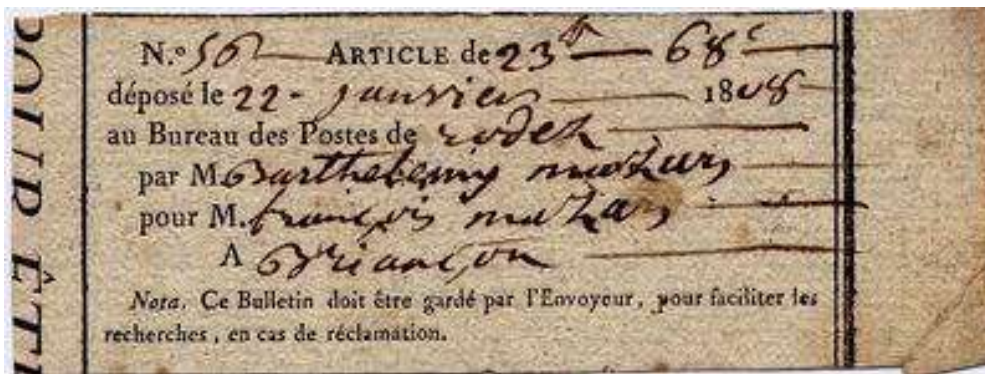 N.º 56 ARTICLE de 23 tt 68 c
déposé le 22 - janvier 1808
au Bureau des Postes de rodez
par M. Barthelemy mazars
pour M. françois mazars
A Briançon
Nota. Ce Bulletin doit être gardé par l'Envoyeur, pour faciliter les
recherches, en cas de réclamation.
POUR ÊT